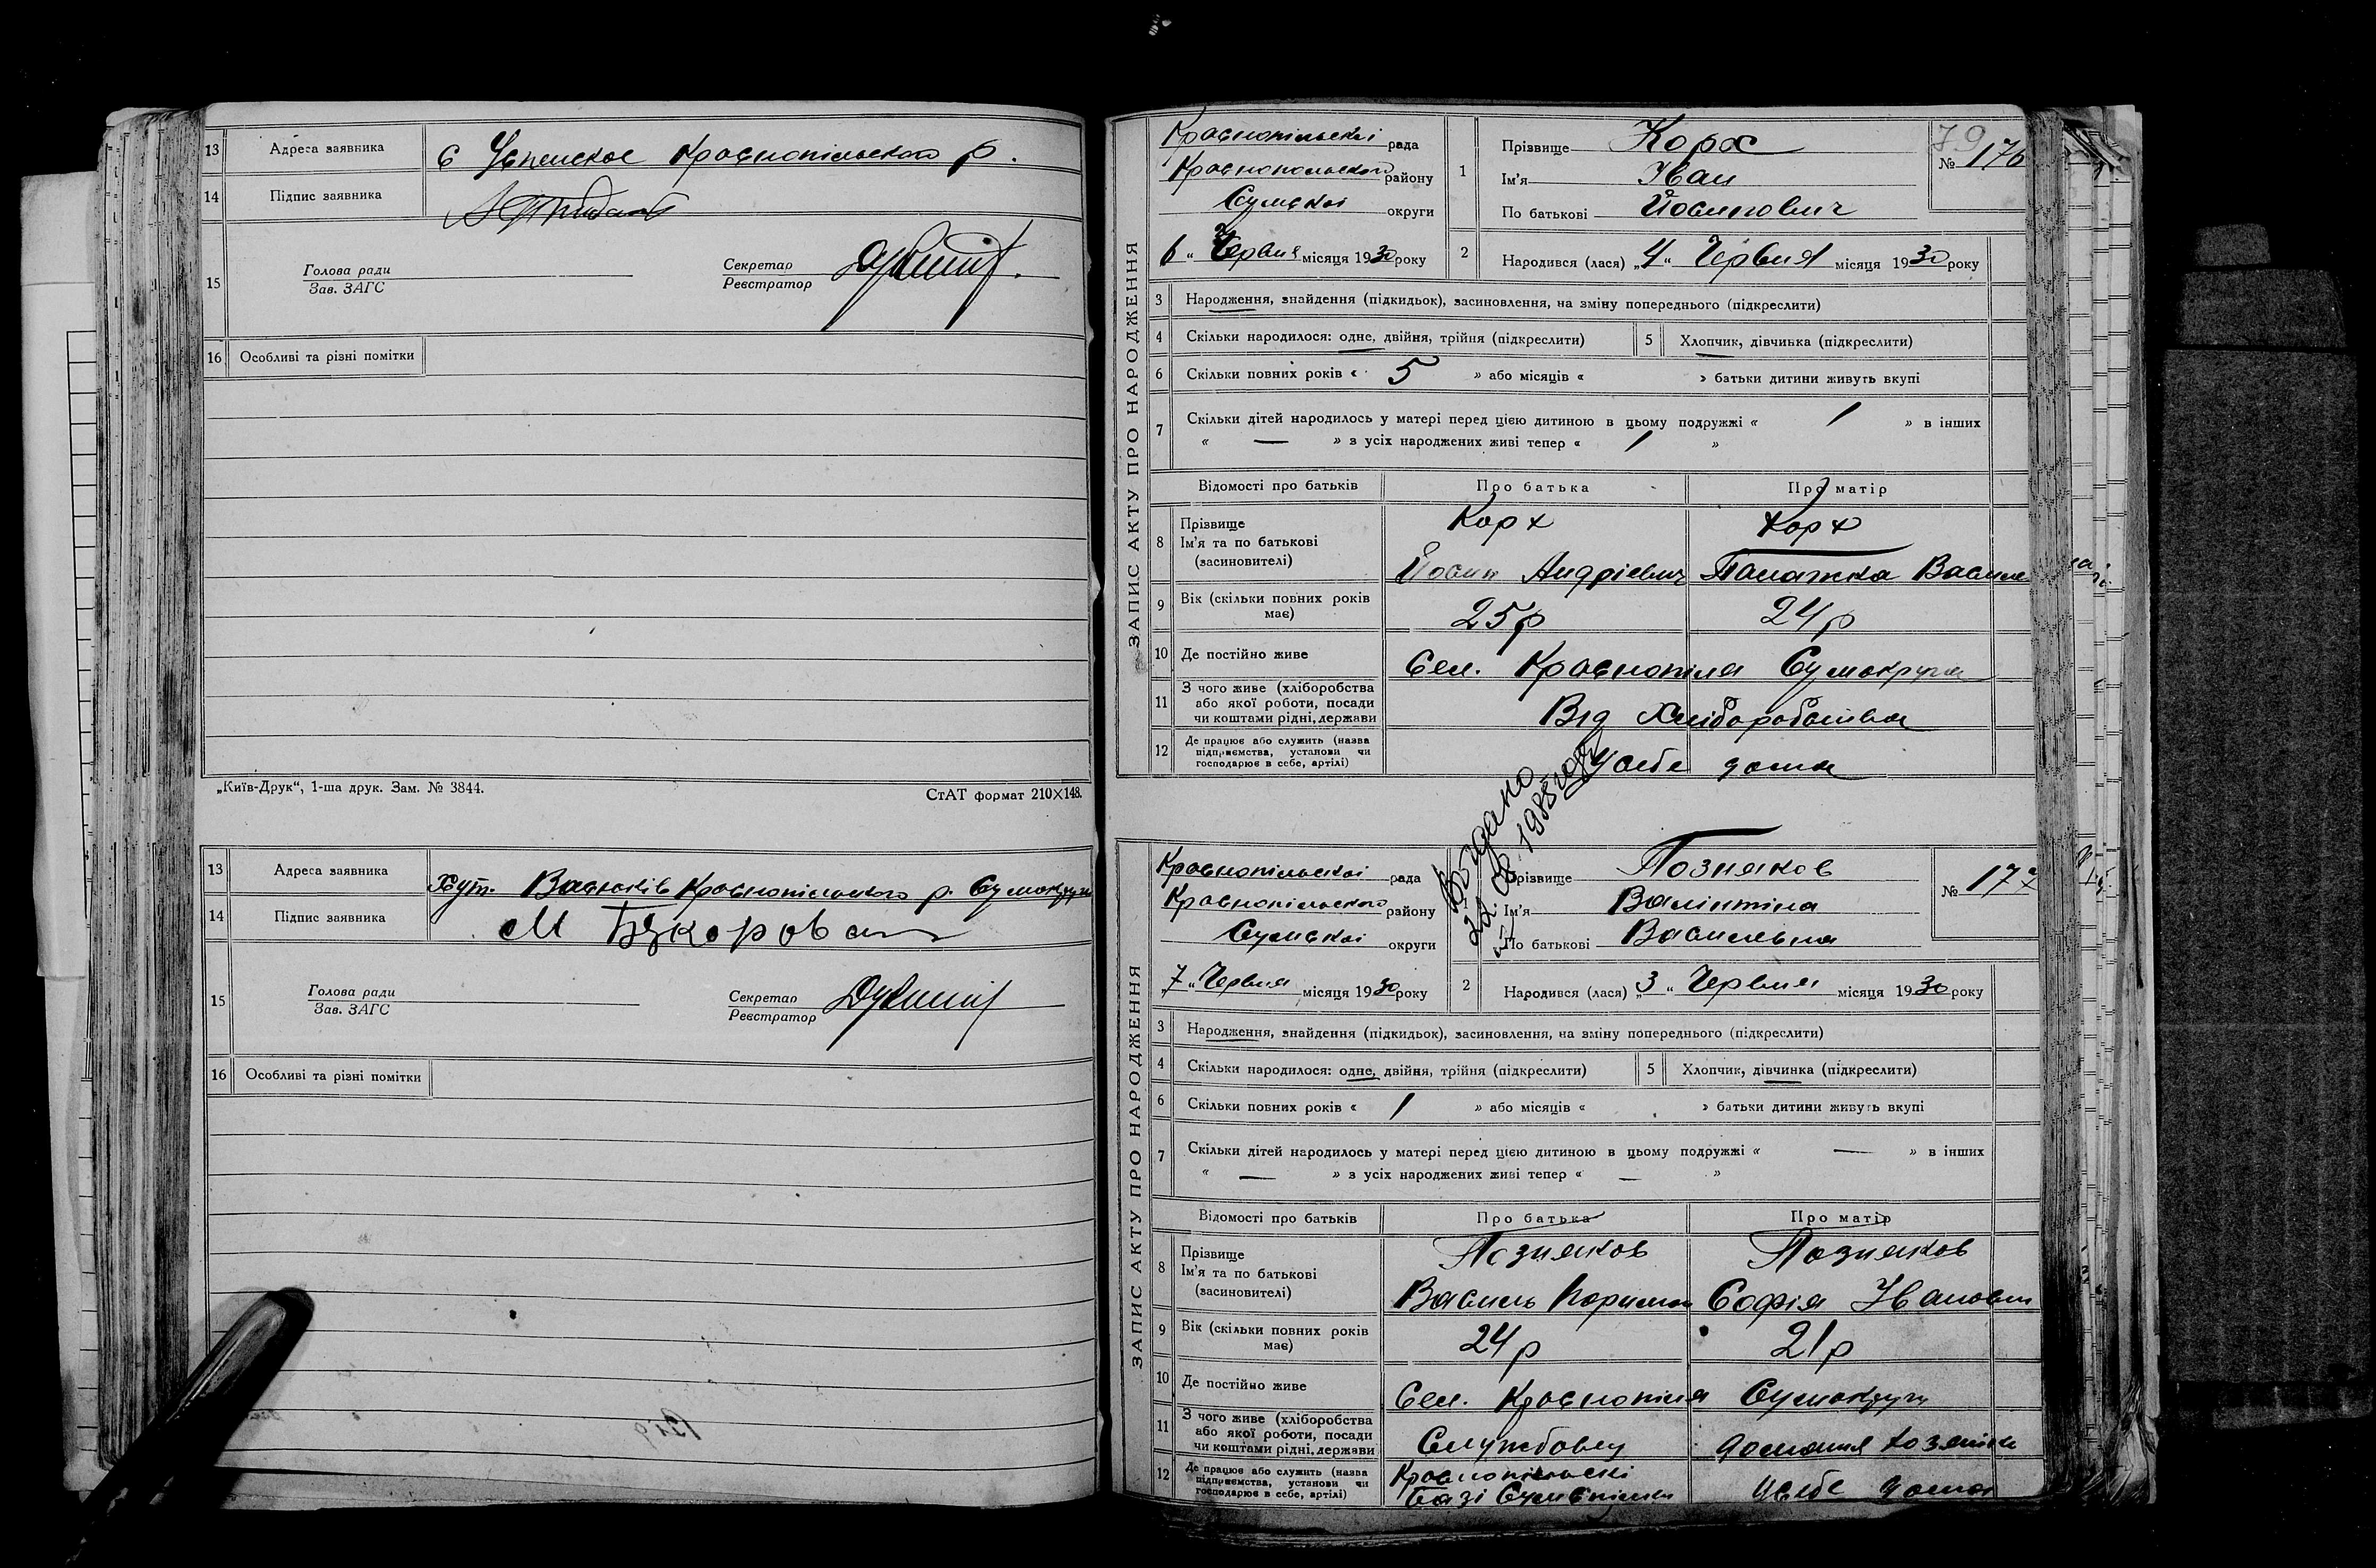 13 Адреса заявника с Успенское Краснопільского р.
14 Підпис заявника
15 Голова ради
Зав. ЗАГС
Секретар
Реєстратор
16 Особливі та різні помітки
„Київ-Друк“, 1-ша друк. Зам. № 3844.
СтАТ формат 210×148.
13 Адреса заявника Хут. Васюків Краснопільського р. Сумокруги
14 Підпис заявника М Бткорова
15 Голова ради
Зав. ЗАГС
Секретар
Реєстратор
16 Особливі та різні помітки
ЗАПИС АКТУ ПРО НАРОДЖЕННЯ
79
Краснопільскої рада
Краснопольского району
Сумської округи
6 „ Червня місяця 1930 року
1 Прізвище Корх
Ім'я Іван
По батькові Йосипович
№ 176
2 Народився (лася) „4“ Червня місяця 1930 року
3 Народження, знайдення (підкидьок), засиновлення, на зміну попереднього (підкреслити)
4 Скільки народилося: одне, двійня, трійня (підкреслити)
5 Хлопчик, дівчинка (підкреслити)
6 Скільки повних років « 5 » або місяців « » батьки дитини живуть вкупі
7 Скільки дітей народилось у матері перед цією дитиною в цьому подружжі « 1 » в інших
« — » з усіх народжених живі тепер « 1 »
Відомості про батьків Про батька Про матір
8 Прізвище Корх Корх
Ім'я та по батькові
(засиновителі) Йосип Андрієвич Палажка Василе
9 Вік (скільки повних років має) 25 р 24 р
10 Де постійно живе Сел. Краснопілля Сумокруги
11 З чого живе (хліборобства
або якої роботи, посади
чи коштами рідні, держави Від Хліборобства
12 Де працює або служить (назва
підприємства, установи чи
господарює в себе, артілі) У себе дома
Видано
22. 08. 1985
ЗАПИС АКТУ ПРО НАРОДЖЕННЯ
Краснопільскої рада
Краснопільского району
Сумської округи
„7“ Червня місяця 1930 року
Прізвище Позняков
Ім'я Валінтіна
По батькові Василевна
№ 177
2 Народився (лася) „3“ Червня місяця 1930 року
3 Народження, знайдення (підкидьок), засиновлення, на зміну попереднього (підкреслити)
4 Скільки народилося: одне, двійня, трійня (підкреслити)
5 Хлопчик, дівчинка (підкреслити)
6 Скільки повних років « 1 » або місяців « » батьки дитини живуть вкупі
7 Скільки дітей народилось у матері перед цією дитиною в цьому подружжі « — » в інших
« — » з усіх народжених живі тепер « — »
Відомості про батьків Про батька Про матір
8 Прізвище Позняков Позняков
Ім'я та по батькові
(засиновителі) Василь Софія Іванови
9 Вік (скільки повних років має) 24 р 21 р
10 Де постійно живе Сел. Краснопілля Сумокруги
11 З чого живе (хліборобства
або якої роботи, посади
чи коштами рідні, держави Службовец домашня хозяйка
12 Де працює або служить (назва
підприємства, установи чи
господарює в себе, артілі) Краснопільскі
базі Сумспілки У себе дома